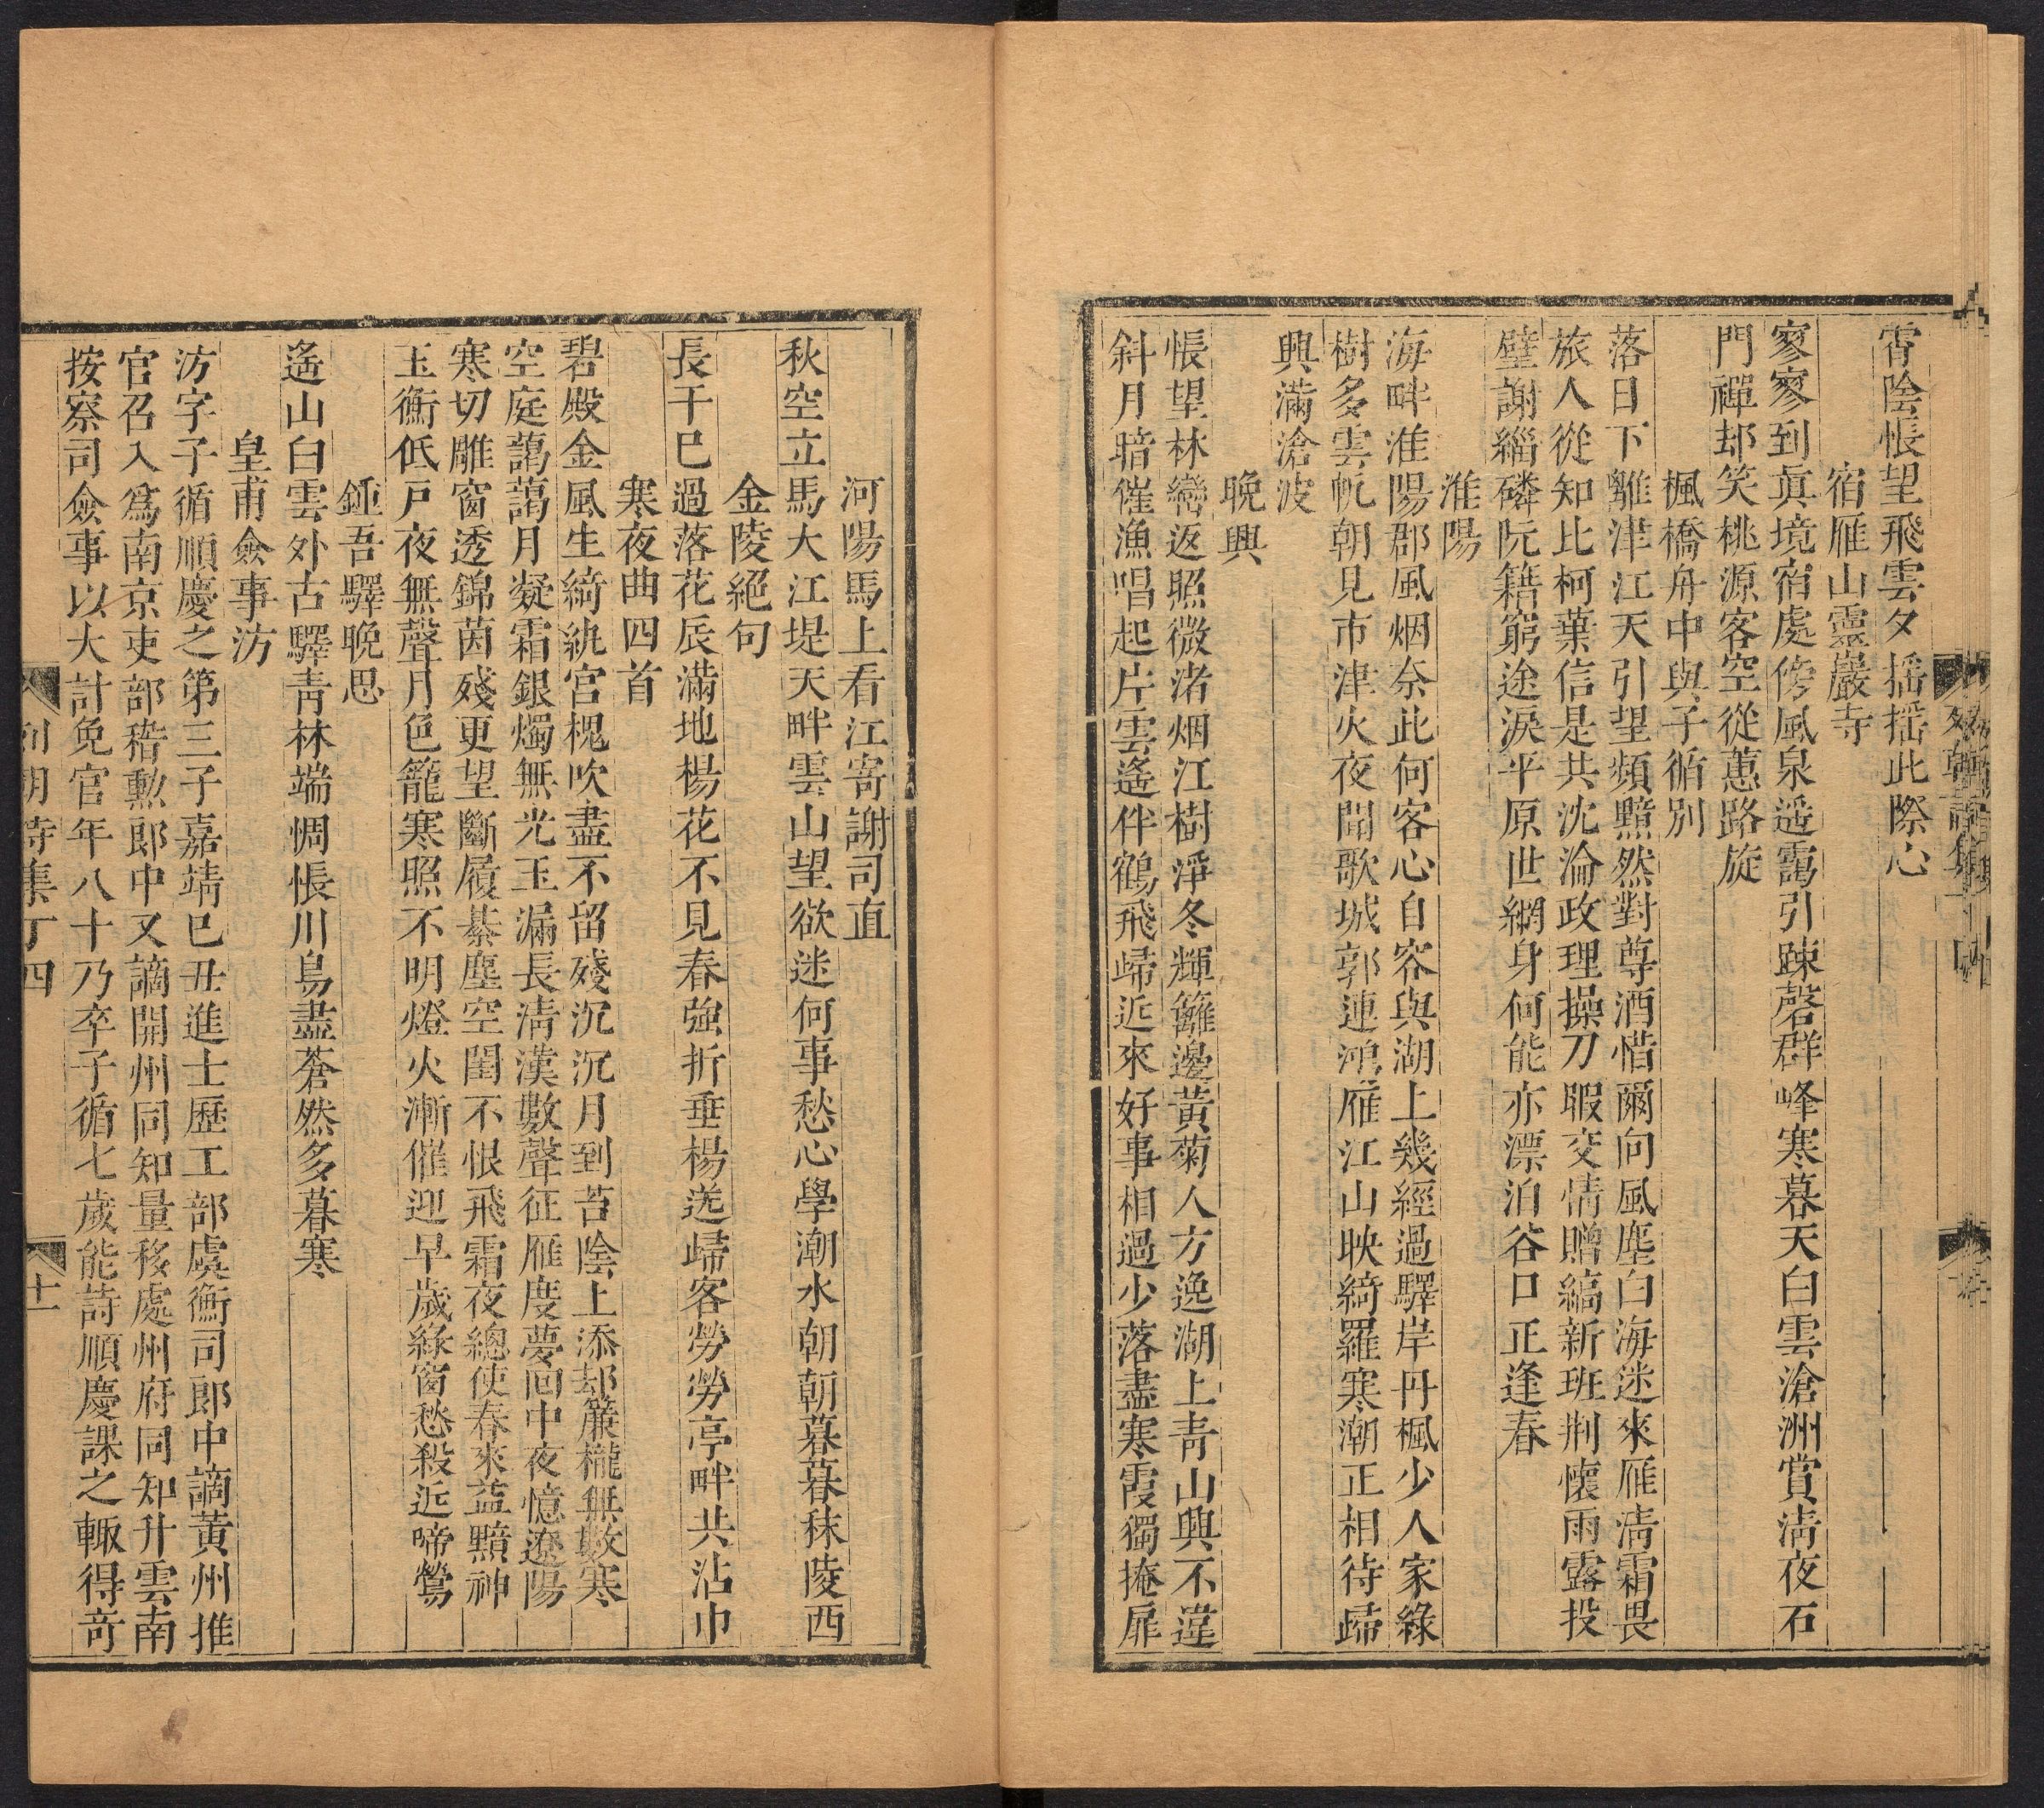 霄陰悵望飛雲夕搖搖此際心
宿雁山靈巖寺
寥寥到眞境宿處傍風泉遥靄引疎磬群峰寒暮天白雲滄洲賞淸夜石
門禪却笑桃源客空從蕙路旋
楓橋舟中與子循別
落日下離津江天引望頻黯然對尊酒惜爾向風塵白海迷來雁淸霜畏
旅人從知比柯葉信是共沈淪政理操刀暇交情贈縞新班荆懷雨露投
璧謝緇磷阮籍窮途淚平原世網身何能亦漂泊谷口正逢春
淮陽
海畔淮陽郡風烟奈此何客心自容與湖上幾經過驛岸丹楓少人家綠
樹多雲帆朝見市津火夜聞歌城郭連鴻雁江山映綺羅寒潮正相待歸
興滿滄波
晚興
悵望林巒返照微渚烟江樹淨冬輝籬邊黃菊人方逸湖上靑山興不違
斜月暗催漁唱起片雲遙伴鶴飛歸近來好事相過少落盡寒霞獨掩扉
河陽馬上看江寄謝司直
秋空立馬大江堤天畔雲山望欲迷何事愁心學潮水朝朝暮暮秣陵西
金陵絕句
長干已過落花辰滿地楊花不見春強折垂楊送歸客勞勞亭畔共沾巾
寒夜曲四首
碧殿金風生綺紈宮槐吹盡不留殘沉沉月到苔陰上添却簾櫳無數寒
空庭藹藹月凝霜銀燭無光玉漏長淸漢數聲征雁度夢回中夜憶遼陽
寒切雕窗透錦茵殘更望斷履綦塵空閨不恨飛霜夜總使春來益黯神
玉衡低戸夜無聲月色籠寒照不明燈火漸催迎早歲綠窗愁殺近啼鶯
鍾吾驛晚思
遙山白雲外古驛靑林端惆悵川鳥盡蒼然多暮寒
皇甫僉事汸
汸字子循順慶之第三子嘉靖已丑進士歷工部虞衡司郎中謫黃州推
官召入爲南京吏部稽勲郎中又謫開州同知量移處州府同知升雲南
按察司僉事以大計免官年八十乃卒子循七歲能詩順慶課之輙得竒
列朝詩集丁四
十一